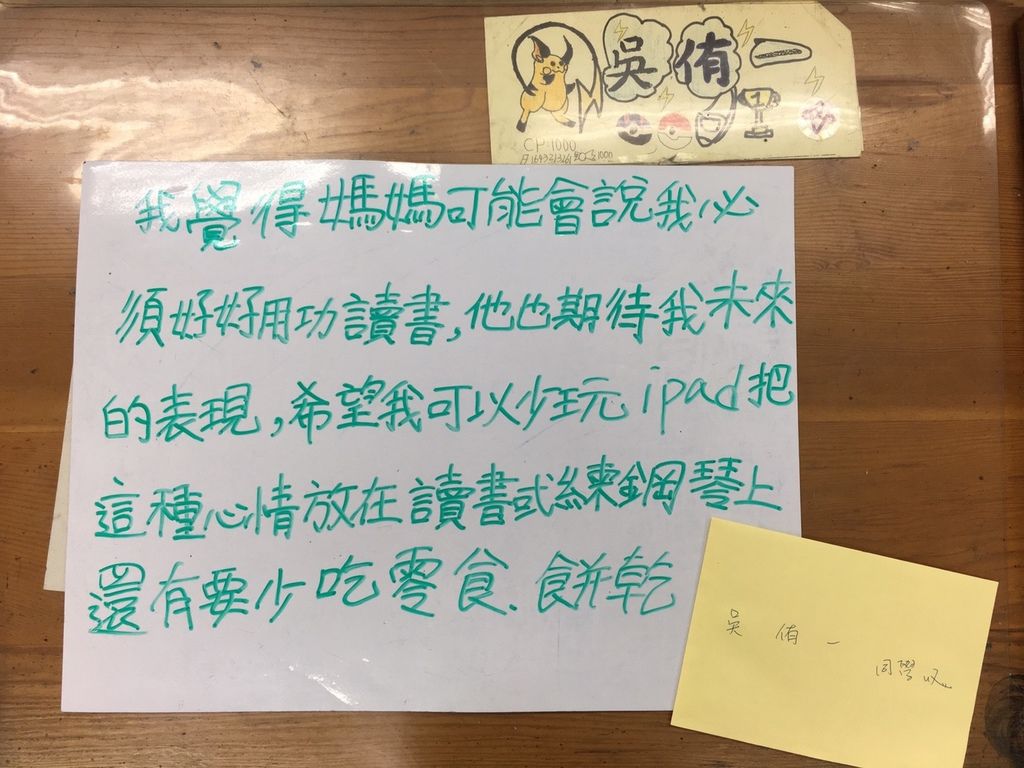 吳侑一
CP:1000
我覺得媽媽可能會說我必
須好好用功讀書,他也期待我未來
的表現,希望我可以少玩ipad把
這種心情放在讀書或練鋼琴上
還有要少吃零食、餅乾
吳侑一
同學收